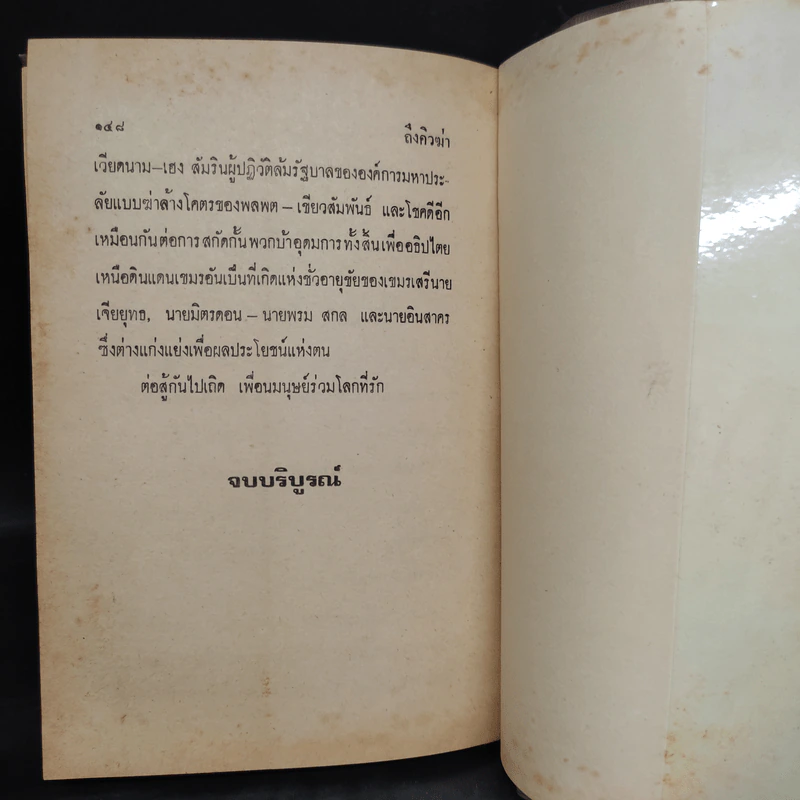 ๑๔๘
ถึงคิวฆ่า
เวียดนาม–เฮง สัมรินผู้ปฏิวัติล้มรัฐบาลขององค์การมหาประ-
ลัยแบบฆ่าล้างโคตรของพลพต – เขียวสัมพันธ์ และโชคดีอีก
เหมือนกันต่อการสกัดกั้นพวกบ้าอุดมการทั้งสิ้นเพื่ออธิปไตย
เหนือดินแดนเขมรอันเป็นที่เกิดแห่งชั่วอายุขัยของเขมรเสรีนาย
เจียยุทธ, นายมิตรดอน – นายพรม สกล และนายอินสาคร
ซึ่งต่างแก่งแย่งเพื่อผลประโยชน์แห่งตน
ต่อสู้กันไปเถิด เพื่อนมนุษย์ร่วมโลกที่รัก
จบบริบูรณ์